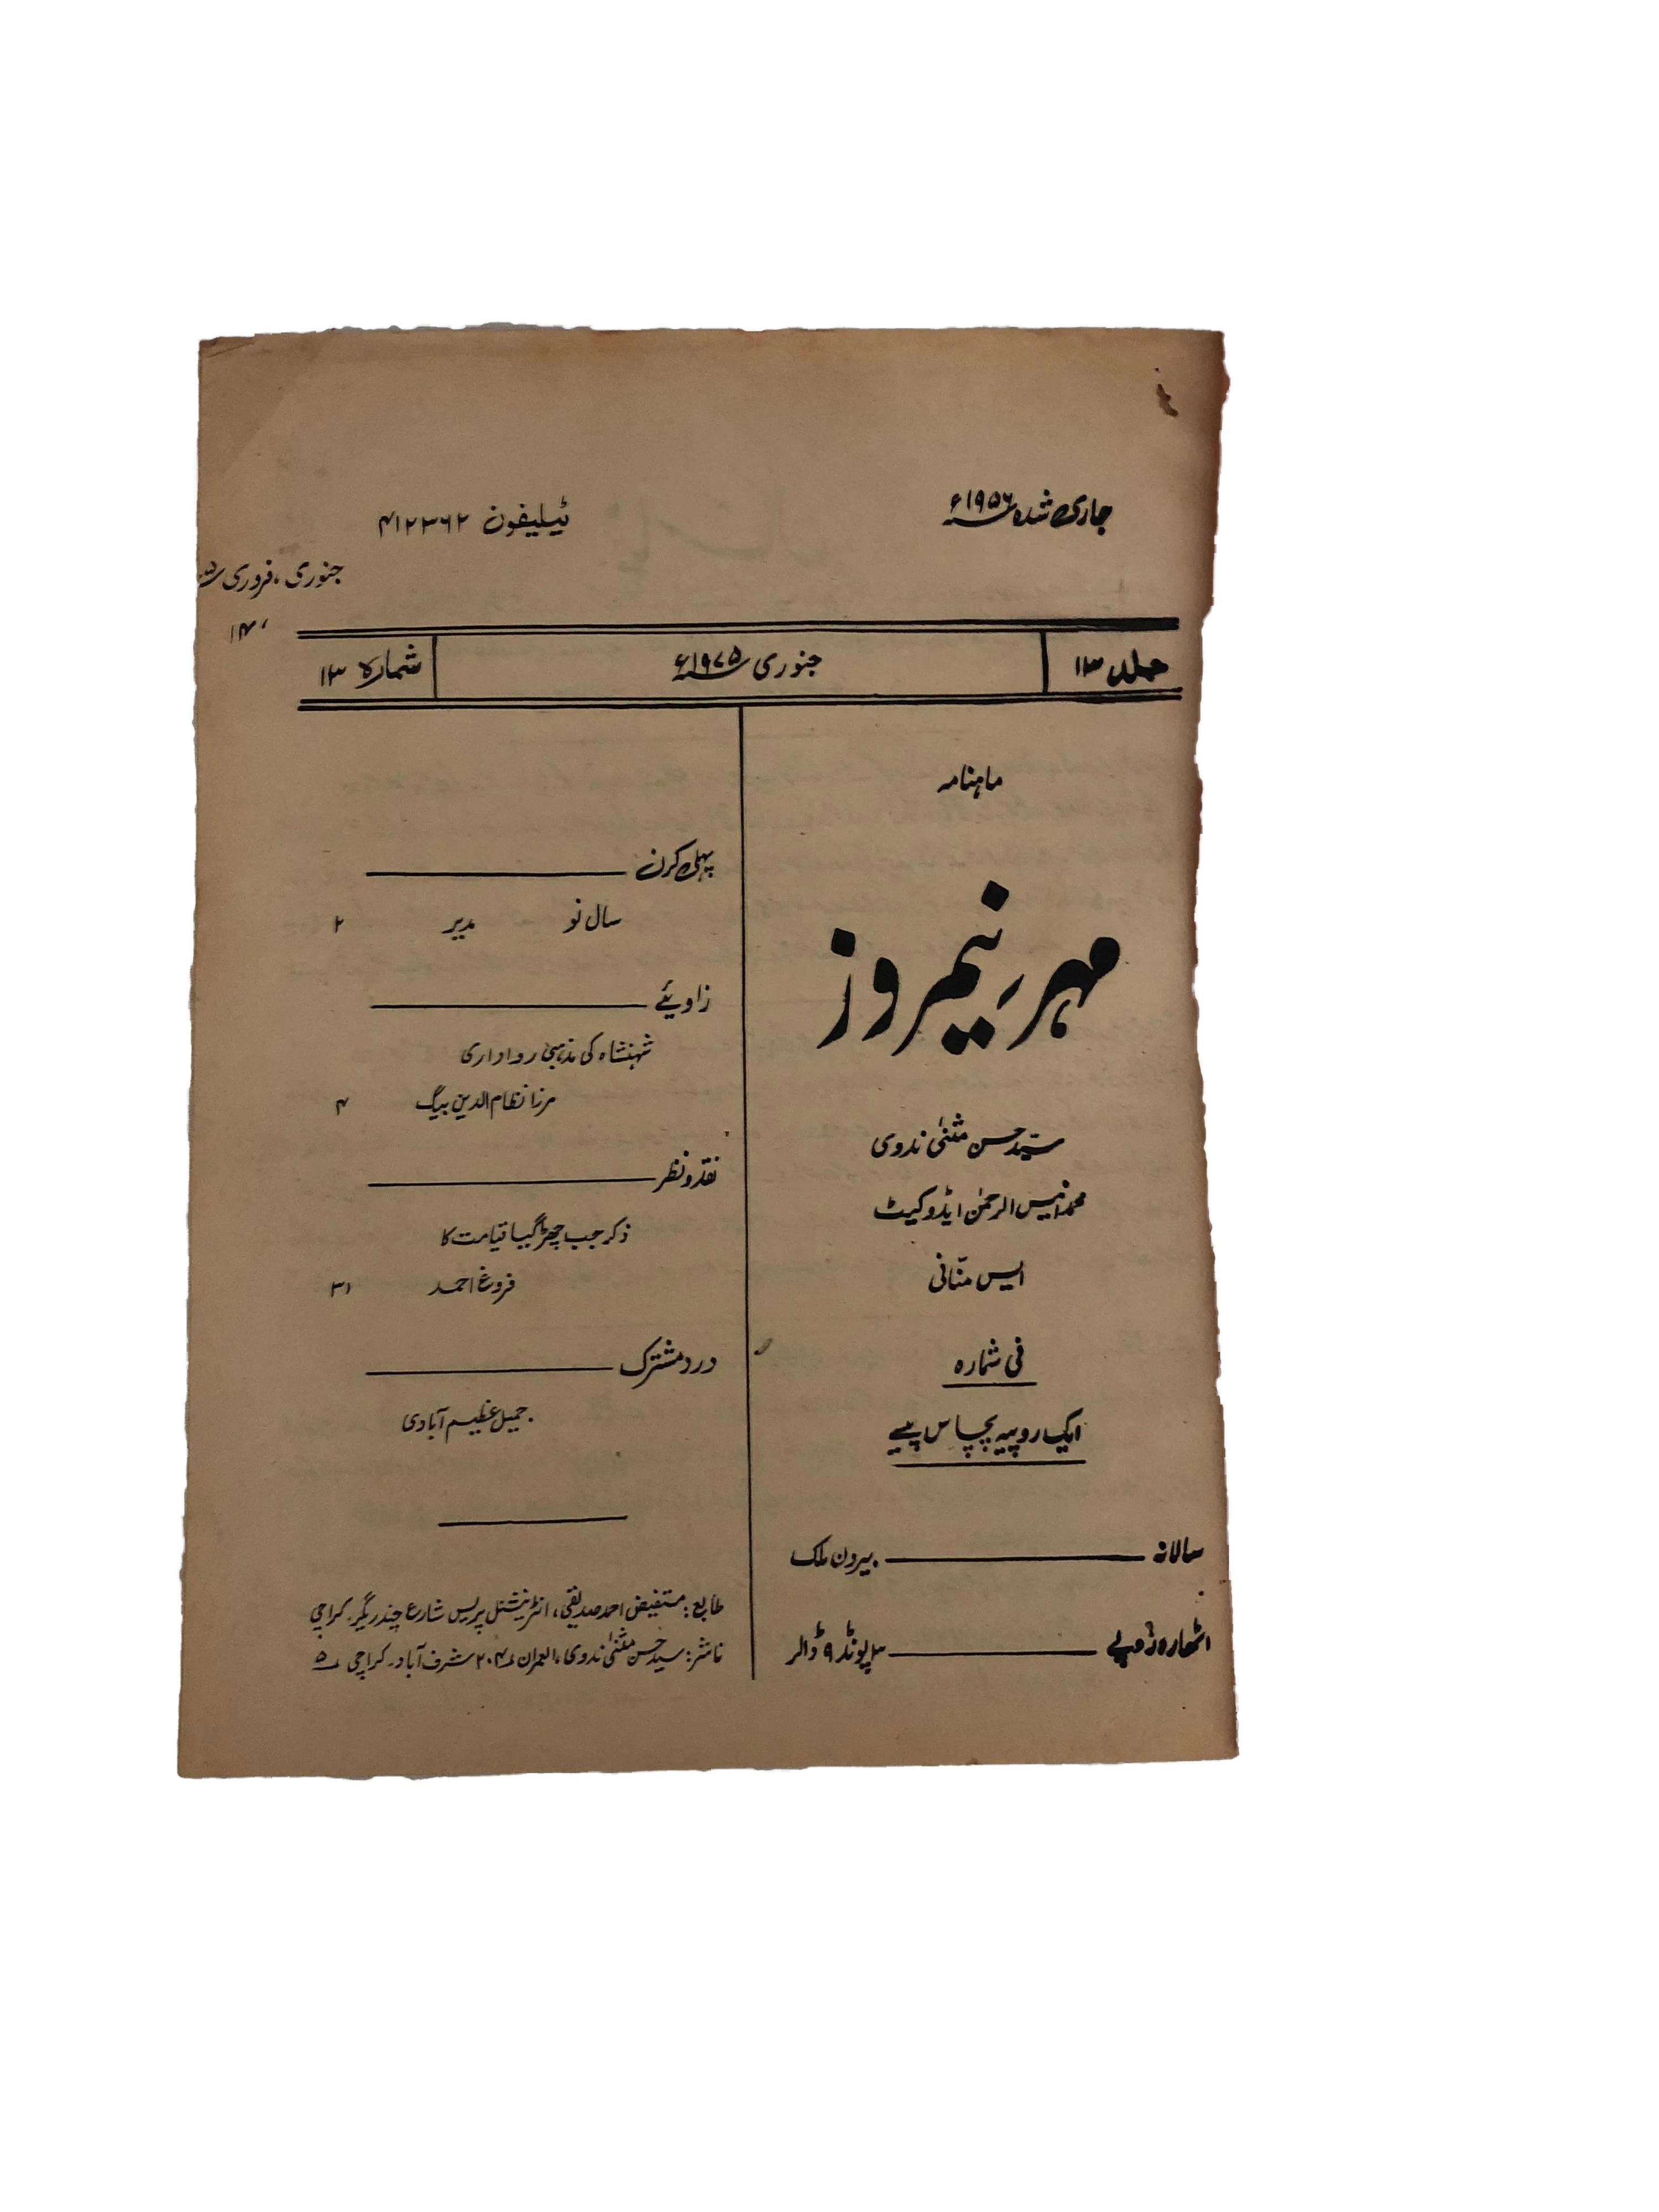 جاری شدہ ۱۹۵۶ء
ٹیلیفون ۴۱۲۳۶۲
جنوری، فروری
۱۴،
جلد ۱۳
جنوری ۱۹۷۵ء
شمارہ ۱۳
ماہنامہ
مہرِ نیمروز
سیّد حسن مثنیٰ ندوی
محمد انیس الرحمٰن ایڈوکیٹ
ایس منّانی
فی شمارہ
ایک روپیہ پچاس پیسے
سالانہ ــــــ بیرون ملک
اٹھارہ روپے ــــــ ۳ پونڈ ۹ ڈالر
پہلی کرن ــــــ
سال نو مدیر ۲
زاویئے ــــــ
شہنشاہ کی مذہبی رواداری
مرزا نظام الدین بیگ ۴
نقد و نظر ــــــ
ذکر جب چھڑ گیا قیامت کا
فروغ احمد ۳۱
درد مشترک ــــــ
جمیل عظیم آبادی
طابع: مستفیض احمد صدیقی، انٹرنیشنل پریس شارع چندریگر۔ کراچی
ناشر: سید حسن مثنیٰ ندوی، العمران ۲۰۴ شرف آباد۔ کراچی ۵